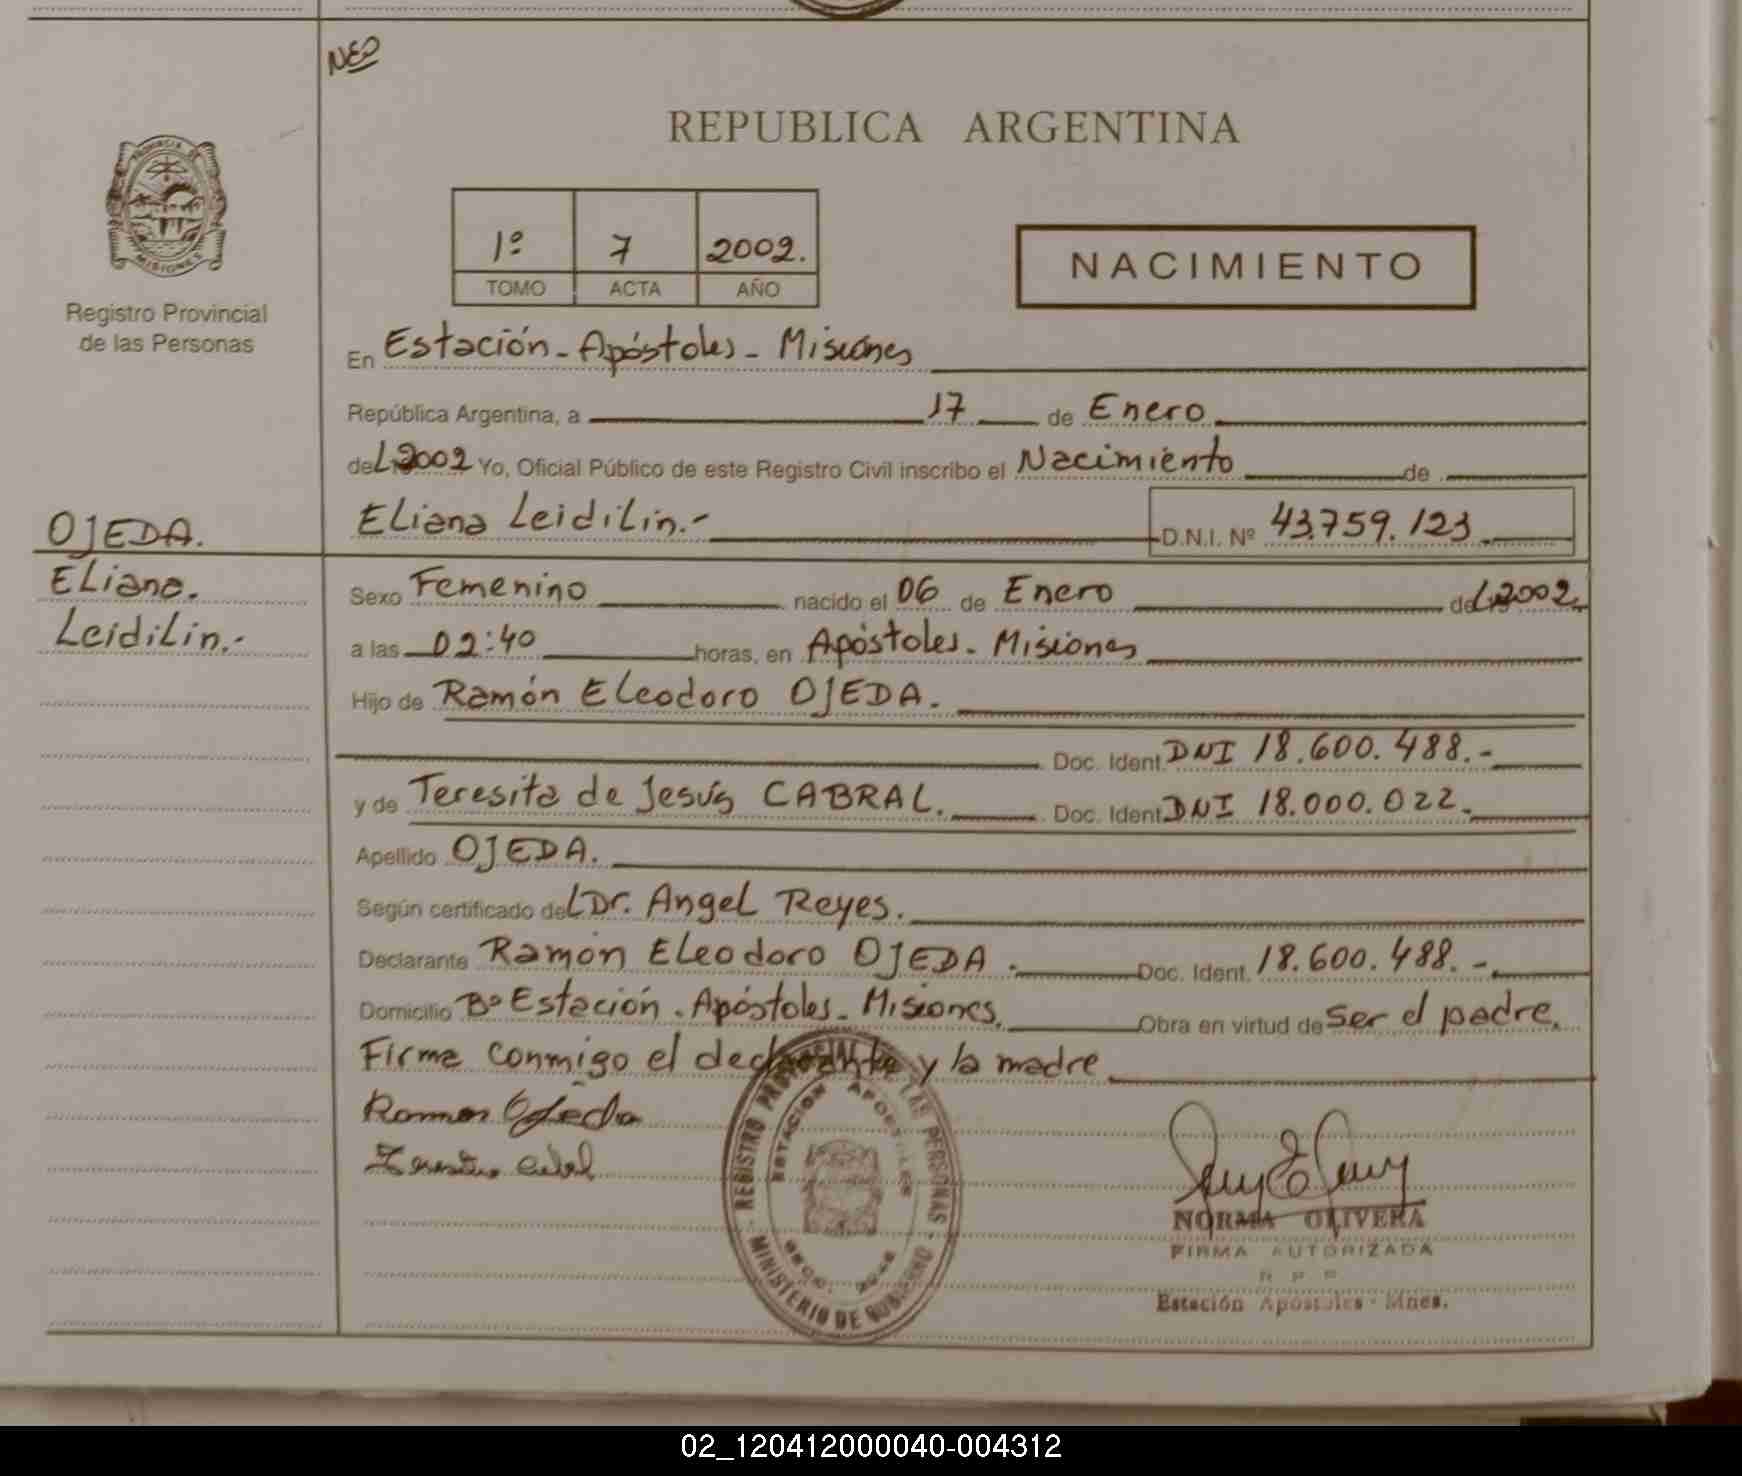 NEO
REPUBLICA ARGENTINA
PROVINCIA DE
MISIONES
1º 7 2002.
TOMO ACTA AÑO
NACIMIENTO
Registro Provincial
de las Personas
En Estación - Apóstoles - Misiones
República Argentina, a 17 de Enero
del 2002 Yo, Oficial Público de este Registro Civil inscribo el Nacimiento de
Eliana Leidilin.- D.N.I. Nº 43.759.123
OJEDA.
Eliana.
Leidilin.-
Sexo Femenino nacido el 06 de Enero del 2002.
a las 02:40 horas, en Apóstoles - Misiones
Hijo de Ramón Eleodoro OJEDA.
Doc. Ident. DNI 18.600.488.-
y de Teresita de Jesús CABRAL. Doc. Ident. DNI 18.000.022.
Apellido OJEDA.
Según certificado del Dr. Angel Reyes.
Declarante Ramón Eleodoro OJEDA. Doc. Ident. 18.600.488.-
Domicilio Bº Estación - Apóstoles - Misiones. Obra en virtud de ser el padre.
Firma conmigo el declarante y la madre
Ramon Ojeda
REGISTRO PROVINCIAL DE LAS PERSONAS
ESTACION APOSTOLES
MINISTERIO DE GOBIERNO
NORMA OLIVERA
FIRMA AUTORIZADA
R P P
Estación Apóstoles - Mnes.
02_120412000040-004312